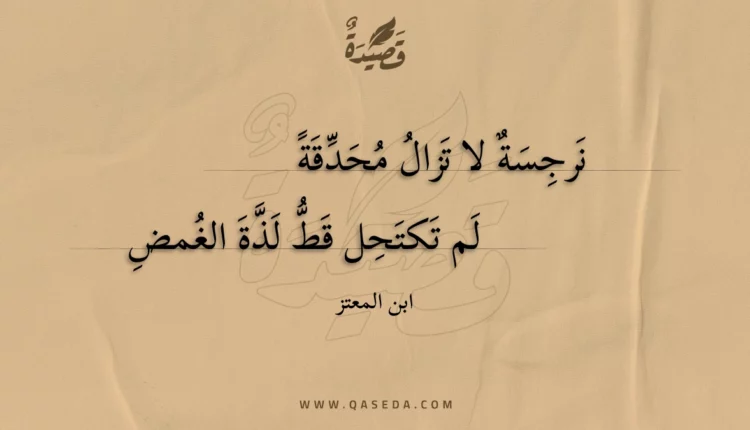 قَصِيْدَةٌ
نَرجِسَةٌ لا تَزالُ مُحَدِّقَةً
لَم تَكتَحِل قَطُّ لَذَّةَ الغُمضِ
ابن المعتز
WWW.QASEDA.COM